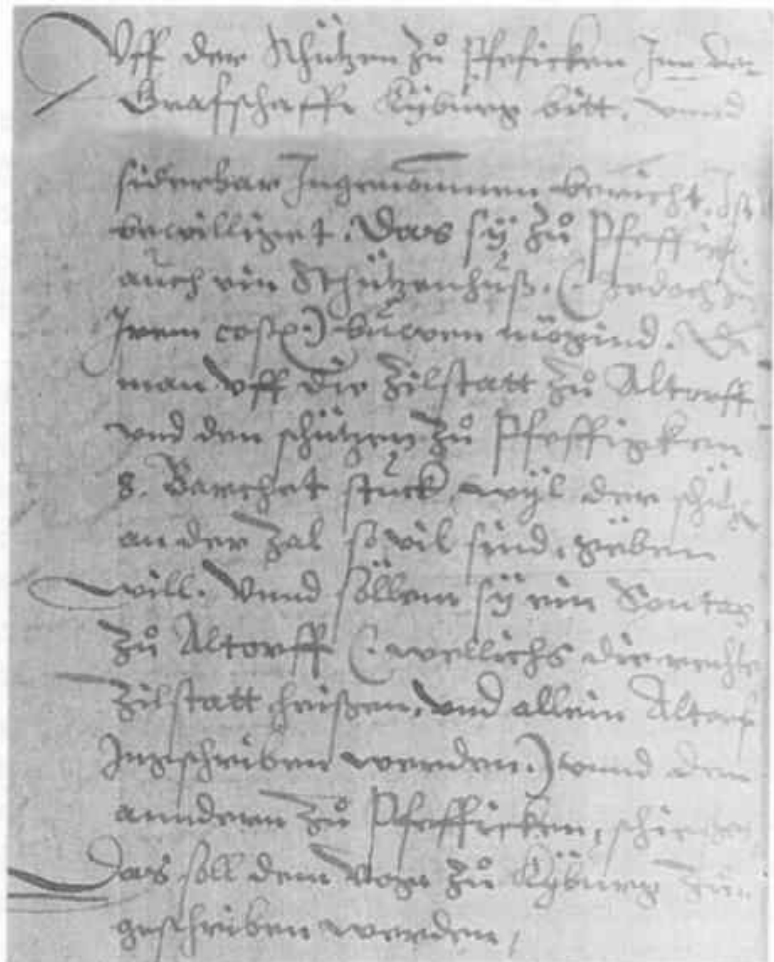 Uff der Schützen zů Pfefficken Inn der
Grafschafft Kÿburg bitt, unnd
Ingenommnen bericht, Ist
bewilliget. Das sÿ zů Pfeffick.
auch ein Schützenhuß. (: Jedoch in
Irem costen:) buwen mögind. Di
man uff die Zilstatt zů Altorff
und den schützen zů Pfeffigken
8. Barchet stuck, wÿl der schütz
an der Zal so vil sind, gäben
will. Unnd söllen sÿ ein Sontag
zů Altorff (: wellichs die rechte
Zilstatt heißen, und allein Altorf
Ingeschriben werden:) unnd den
anndern zů Pfefficken, schießen
Das soll dem Vogt zů Kÿburg zů-
geschriben werden,